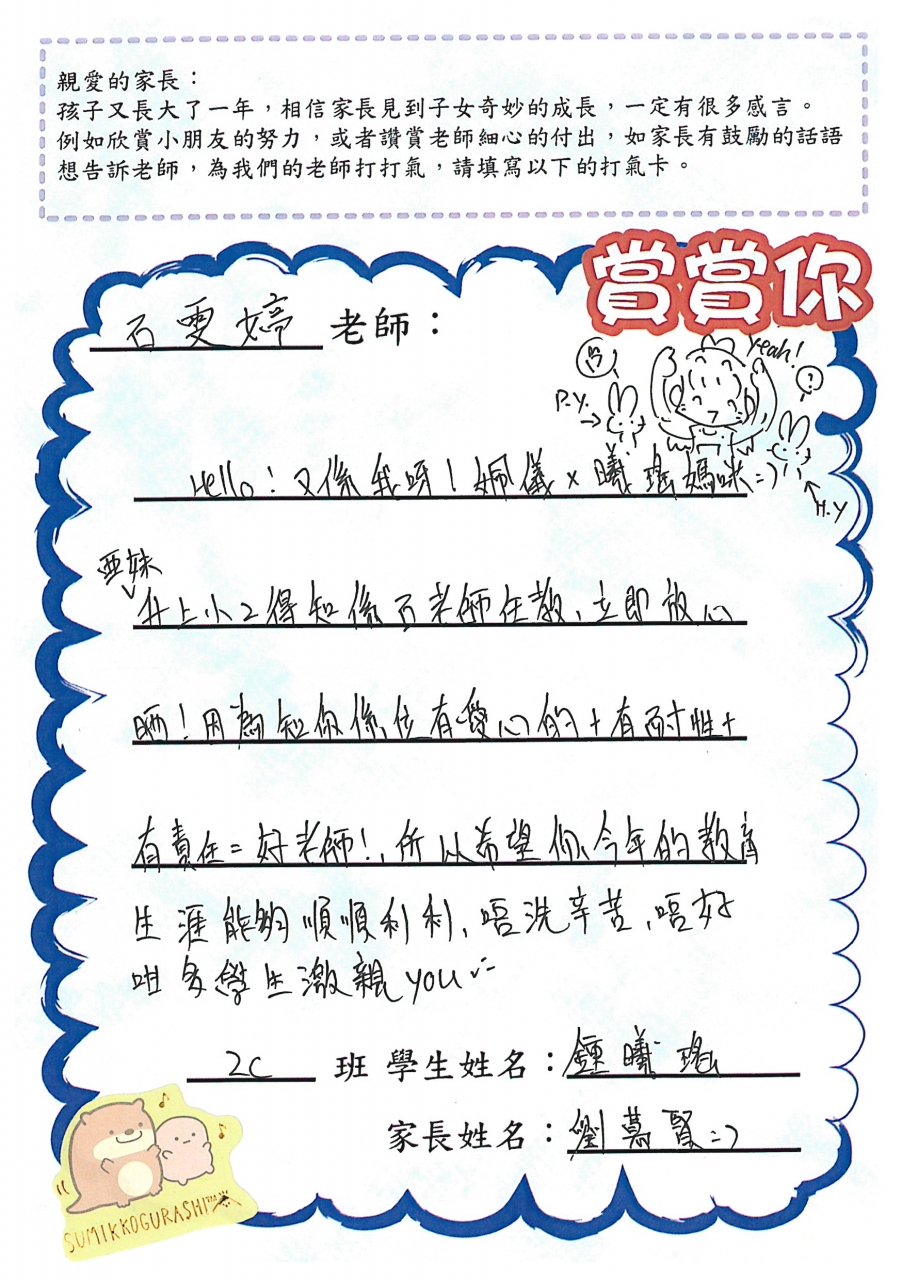 親愛的家長：
孩子又長大了一年，相信家長見到子女奇妙的成長，一定有很多感言。
例如欣賞小朋友的努力，或者讚賞老師細心的付出，如家長有鼓勵的話語
想告訴老師，為我們的老師打打氣，請填寫以下的打氣卡。
賞賞你
石雯婷 老師：
Yeah!
?
P.Y.
Hello！又係我呀！姵儀 x 曦瑤媽咪=)
H.Y
亞妹
升上小2得知係石老師任教，立即放心
晒！因為知你係位有愛心的+有耐性+
有責任=好老師！，所以希望你今年的教育
生涯能夠順順利利，唔洗辛苦，唔好
咁多學生激親you
2C 班 學生姓名：鍾曦瑤
家長姓名：劉慕賢=)
SUMIKKOGURASHI